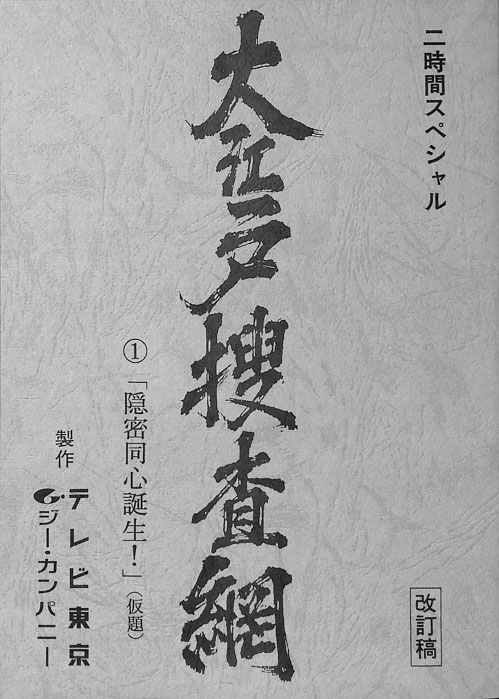 二時間スペシャル
大江戸捜査網
①「隠密同心誕生！」（仮題）
製作
テレビ東京
ジー・カンパニー
改訂稿